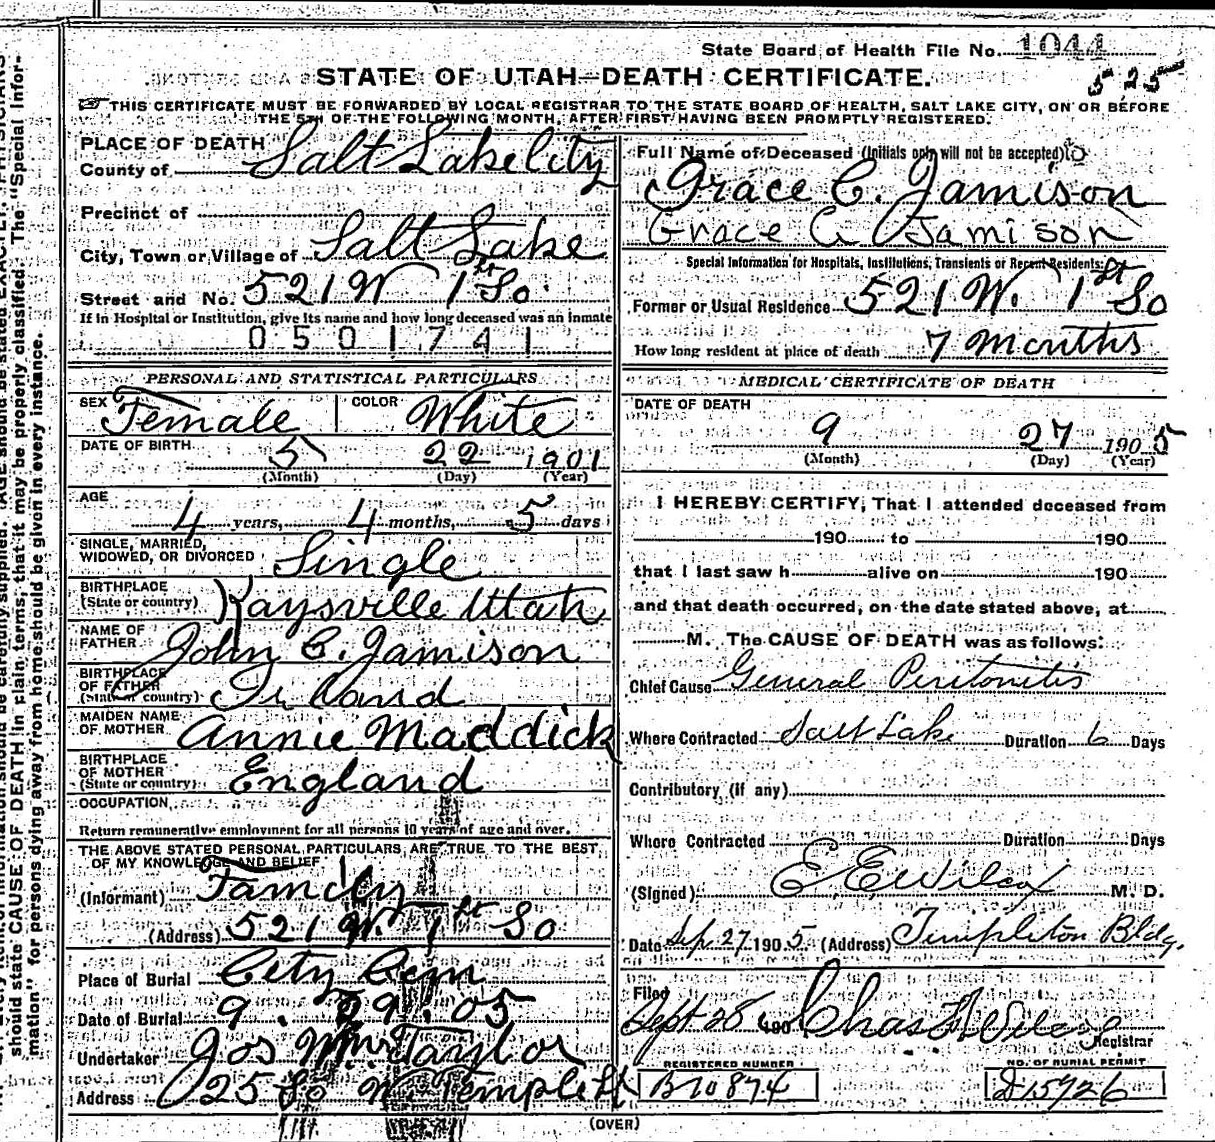 State Board of Health File No. 1044
525
STATE OF UTAH—DEATH CERTIFICATE.
THIS CERTIFICATE MUST BE FORWARDED BY LOCAL REGISTRAR TO THE STATE BOARD OF HEALTH, SALT LAKE CITY, ON OR BEFORE
THE 5TH OF THE FOLLOWING MONTH, AFTER FIRST HAVING BEEN PROMPTLY REGISTERED.
PLACE OF DEATH
County of Salt Lake City
Precinct of
City, Town or Village of Salt Lake
Street and No. 521 W 1st So.
If in Hospital or Institution, give its name and how long deceased was an inmate
0501741
PERSONAL AND STATISTICAL PARTICULARS
SEX Female COLOR White
DATE OF BIRTH
5 22 1901
(Month) (Day) (Year)
AGE
4 years, 4 months, 5 days
SINGLE, MARRIED,
WIDOWED, OR DIVORCED Single
BIRTHPLACE
(State or country) Kaysville Utah
NAME OF
FATHER John C. Jamison
BIRTHPLACE
OF FATHER
(State or country) Ireland
MAIDEN NAME
OF MOTHER Annie Maddick
BIRTHPLACE
OF MOTHER
(State or country) England
OCCUPATION
Return remunerative employment for all persons 10 years of age and over.
THE ABOVE STATED PERSONAL PARTICULARS ARE TRUE TO THE BEST
OF MY KNOWLEDGE AND BELIEF
(Informant) Family
(Address) 521 W. 1st So
Place of Burial City Cem
Date of Burial 9. 29. 05
Undertaker Jos Wm Taylor
Address 25 So W. Temple St
Full Name of Deceased (Initials only will not be accepted)
Grace C. Jamison
Grace C. Jamison
Special Information for Hospitals, Institutions, Transients or Recent Residents:
Former or Usual Residence 521 W. 1st So
How long resident at place of death 7 Months
MEDICAL CERTIFICATE OF DEATH
DATE OF DEATH
9 27 1905
(Month) (Day) (Year)
I HEREBY CERTIFY, That I attended deceased from
190 to 190
that I last saw h alive on 190
and that death occurred, on the date stated above, at
M. The CAUSE OF DEATH was as follows:
Chief Cause General Peritonitis
Where Contracted Salt Lake Duration 6 Days
Contributory (if any)
Where Contracted Duration Days
(Signed) E E Wilcox M. D.
Date Sep. 27 1905 (Address) Templeton Bldg.
Filed
Sept 28 190 Chas
Registrar
REGISTERED NUMBER NO. OF BURIAL PERMIT
B10874 D15926
(OVER)
should state CAUSE OF DEATH in plain terms, that it may be properly classified. The "Special Infor-
mation" for persons dying away from home should be given in every instance.